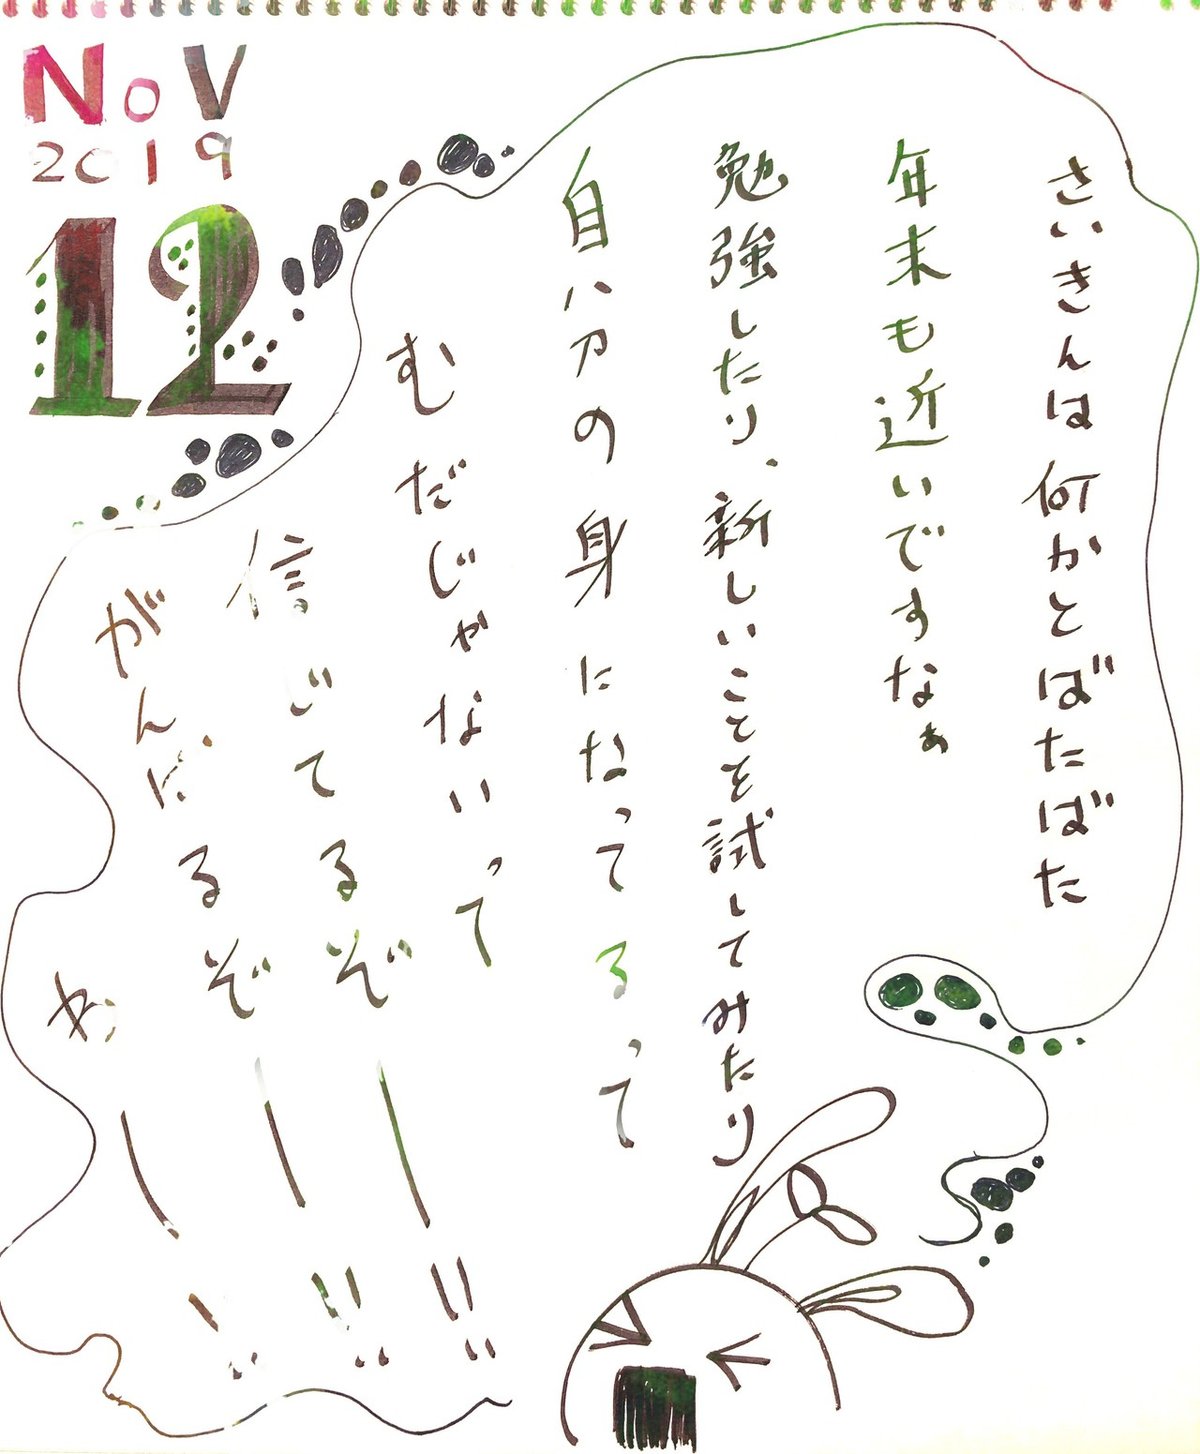 Nov
2019
12
さいきんは何かとばたばた
年末も近いですなぁ
勉強したり、新しいことを試してみたり
自分の身になってるって
むだじゃないって
信じてるぞー!!
がんばるぞー!!